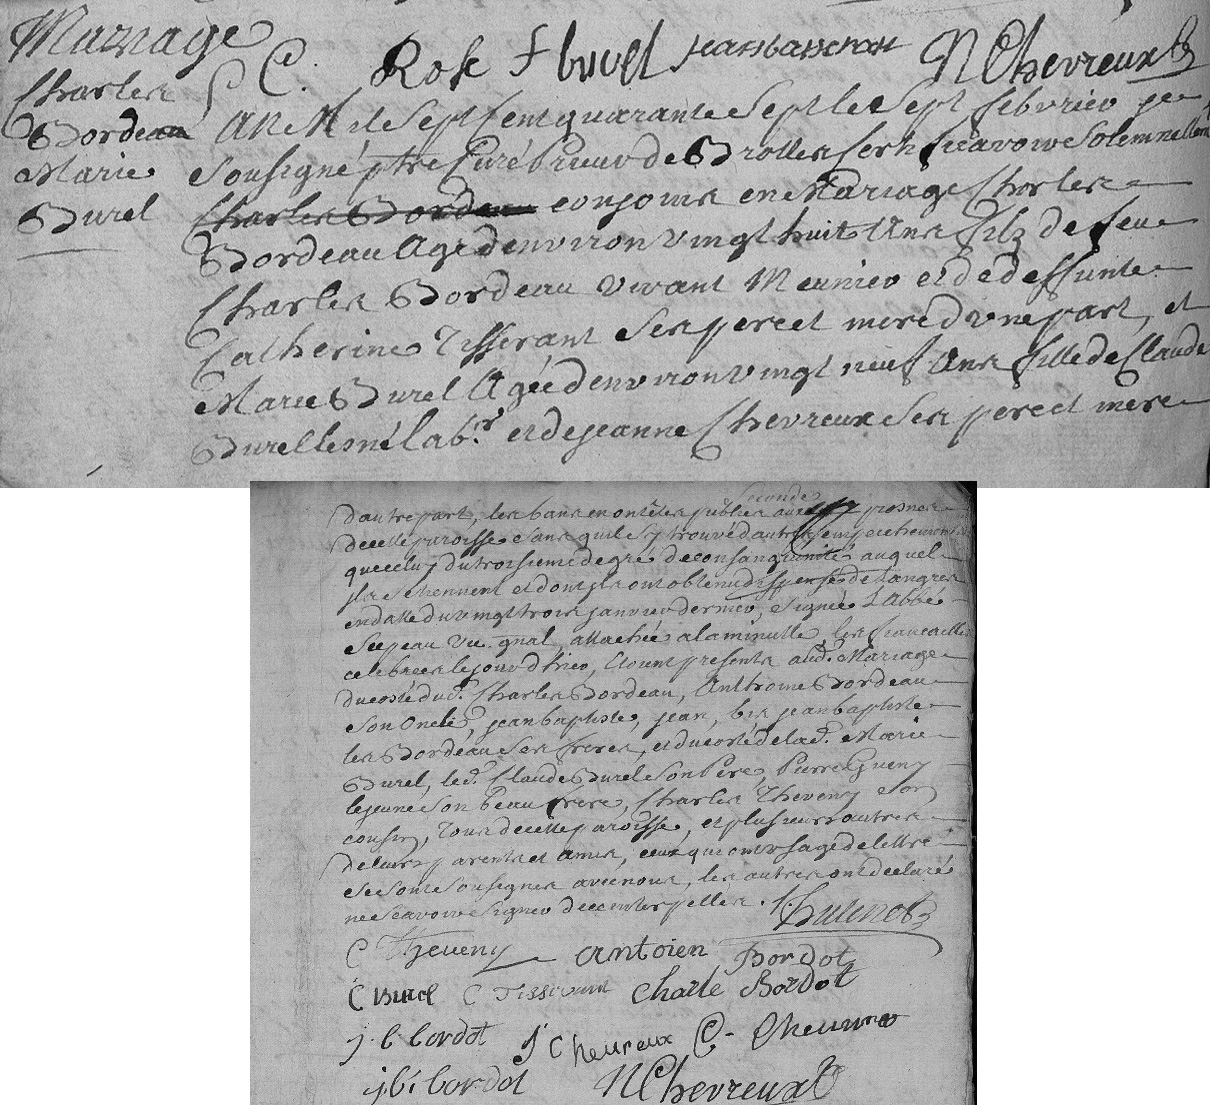 Mariage
Charles
Bordeau
Marie
Burel
C. Rose f buvel jeanbaischon N Chevreux
L'An Mil Sept Cent quarante Sept le Sept febvrier je
Sousigné ptre Curé prieur de Brolles Certifie avoir Solemnellem
Charles Bordeau conjoins en Mariage Charles
Bordeau Agé d'environ vingt huit Ans filz de feu
Charles Bordeau vivant Meunier et de deffunte
Catherine Tisserant Ses pere et mere d'une part, et
Marie Burel Agée d'environ vingt neuf Ans fille de Claude
Burel lesné lab.r et de jeanne Chevreux Ses pere et mere
d'autre part, les bans en ont étés publiés aux secondes prosnes
de cette paroisse Sans quil Sy trouvé d'autres empechemens
que celuy du troisieme degré de consanguinité auquel
jls se tiennent et dont jls ont obtenu dispense de Langres
en datte du vingt trois janvier dernier, Signée L'Abbé
vic. gnal, attachée a la minutte, les fiancailles
celebrées le jour d'hier, Etount presents aud. Mariage
du costé dud. Charles Bordeau, Anthoine Bordeau
Son Oncle, jean baptiste, jean, bis jean baptiste
les Bordeau Ses freres, et du costé de lad. Marie
Burel, led. Claude Burel Son Pere, Pierre Gueny
le jeune Son beau frere, Charles Theveny Son
cousin, Tous de cette paroisse, et plusieurs autres
de leurs parents et Amis, ceux qui ont usage de lettre
se sont Sousignes avec nous, les autres ont declaré
ne Scavoir Signer de ce interpelles.
C Theveny antoien Bordot
C Burel C Tisserant Charle Bordot
j. b. bordot j Cheureux C-
j. b. bordot N Chevreux